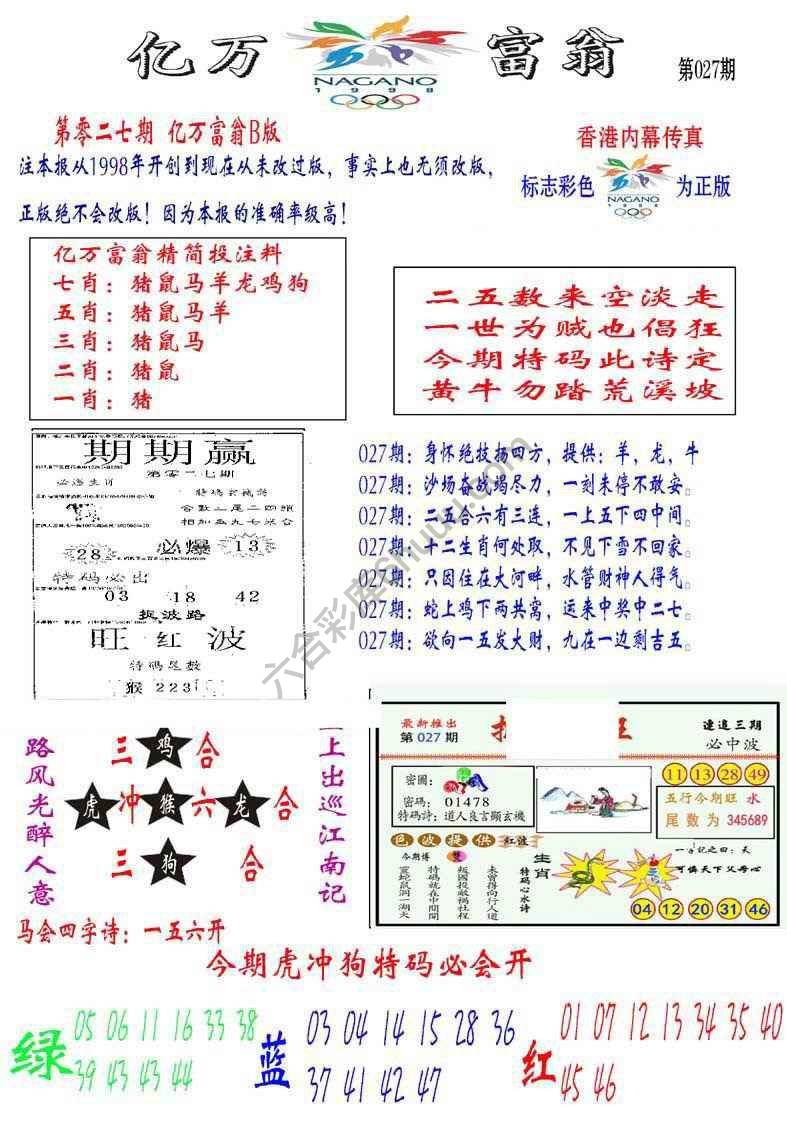 亿万富翁
NAGANO
1998
第027期
第零二七期 亿万富翁B版
注本报从1998年开创到现在从未改过版，事实上也无须改版，
正版绝不会改版！因为本报的准确率级高！
香港内幕传真
标志彩色
NAGANO
1998
为正版
亿万富翁精简投注料
七肖：猪鼠马羊龙鸡狗
五肖：猪鼠马羊
三肖：猪鼠马
二肖：猪鼠
一肖：猪
二五数来空淡走
一世为贼也倡狂
今期特码此诗定
黄牛勿踏荒溪坡
期期赢
第零二七期
必爆
28
13
特码必出
03 18 42
捉波路
旺红波
特码尾数
猴 223
027期：身怀绝技扬四方，提供：羊，龙，牛
027期：沙场奋战竭尽力，一刻未停不敢妄。
027期：二上合六有三连，一上五下四中间。
027期：十二生肖何处取，不见下雪不回家。
027期：只因住在大河畔，水管财神人得气。
027期：蛇上鸡下两共窝，运来中奖中二七。
027期：欲向一五发大财，九在一边剩吉五。
六合彩库6huuu.com
路风光醉人意
三 鸡 合
虎 冲 猴 六 龙 合
三 狗 合
上出巡江南记
马会四字诗：一五六开
最新推出
第027期
連追三期
必中波
密圖：
密碼：01478
特碼詩：道人良言顯玄機
11 13 28 49
五行今期旺 水
尾数为 345689
色波提供 红波
今期博 雙
未曾得向行人道
叛國投敵禍社程
特碼就在中間開
靈蛇鼠洞一湖天
生肖
特码心水诗
一字记之曰：天
可憐天下父母心
04 12 20 31 46
今期虎冲狗特码必会开
绿
05 06 11 16 33 38
39 43 43 44
蓝
03 04 14 15 28 36
37 41 42 47
红
01 07 12 13 34 35 40
45 46